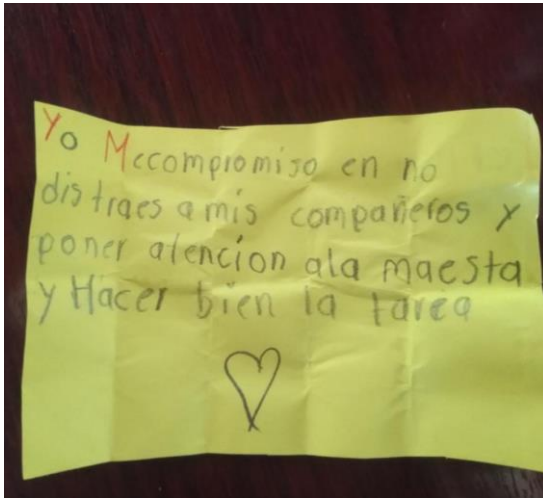 Yo Mecompromiso en no
distraes amis compañeros y
poner atencion ala maesta
y Hacer bien la tarea